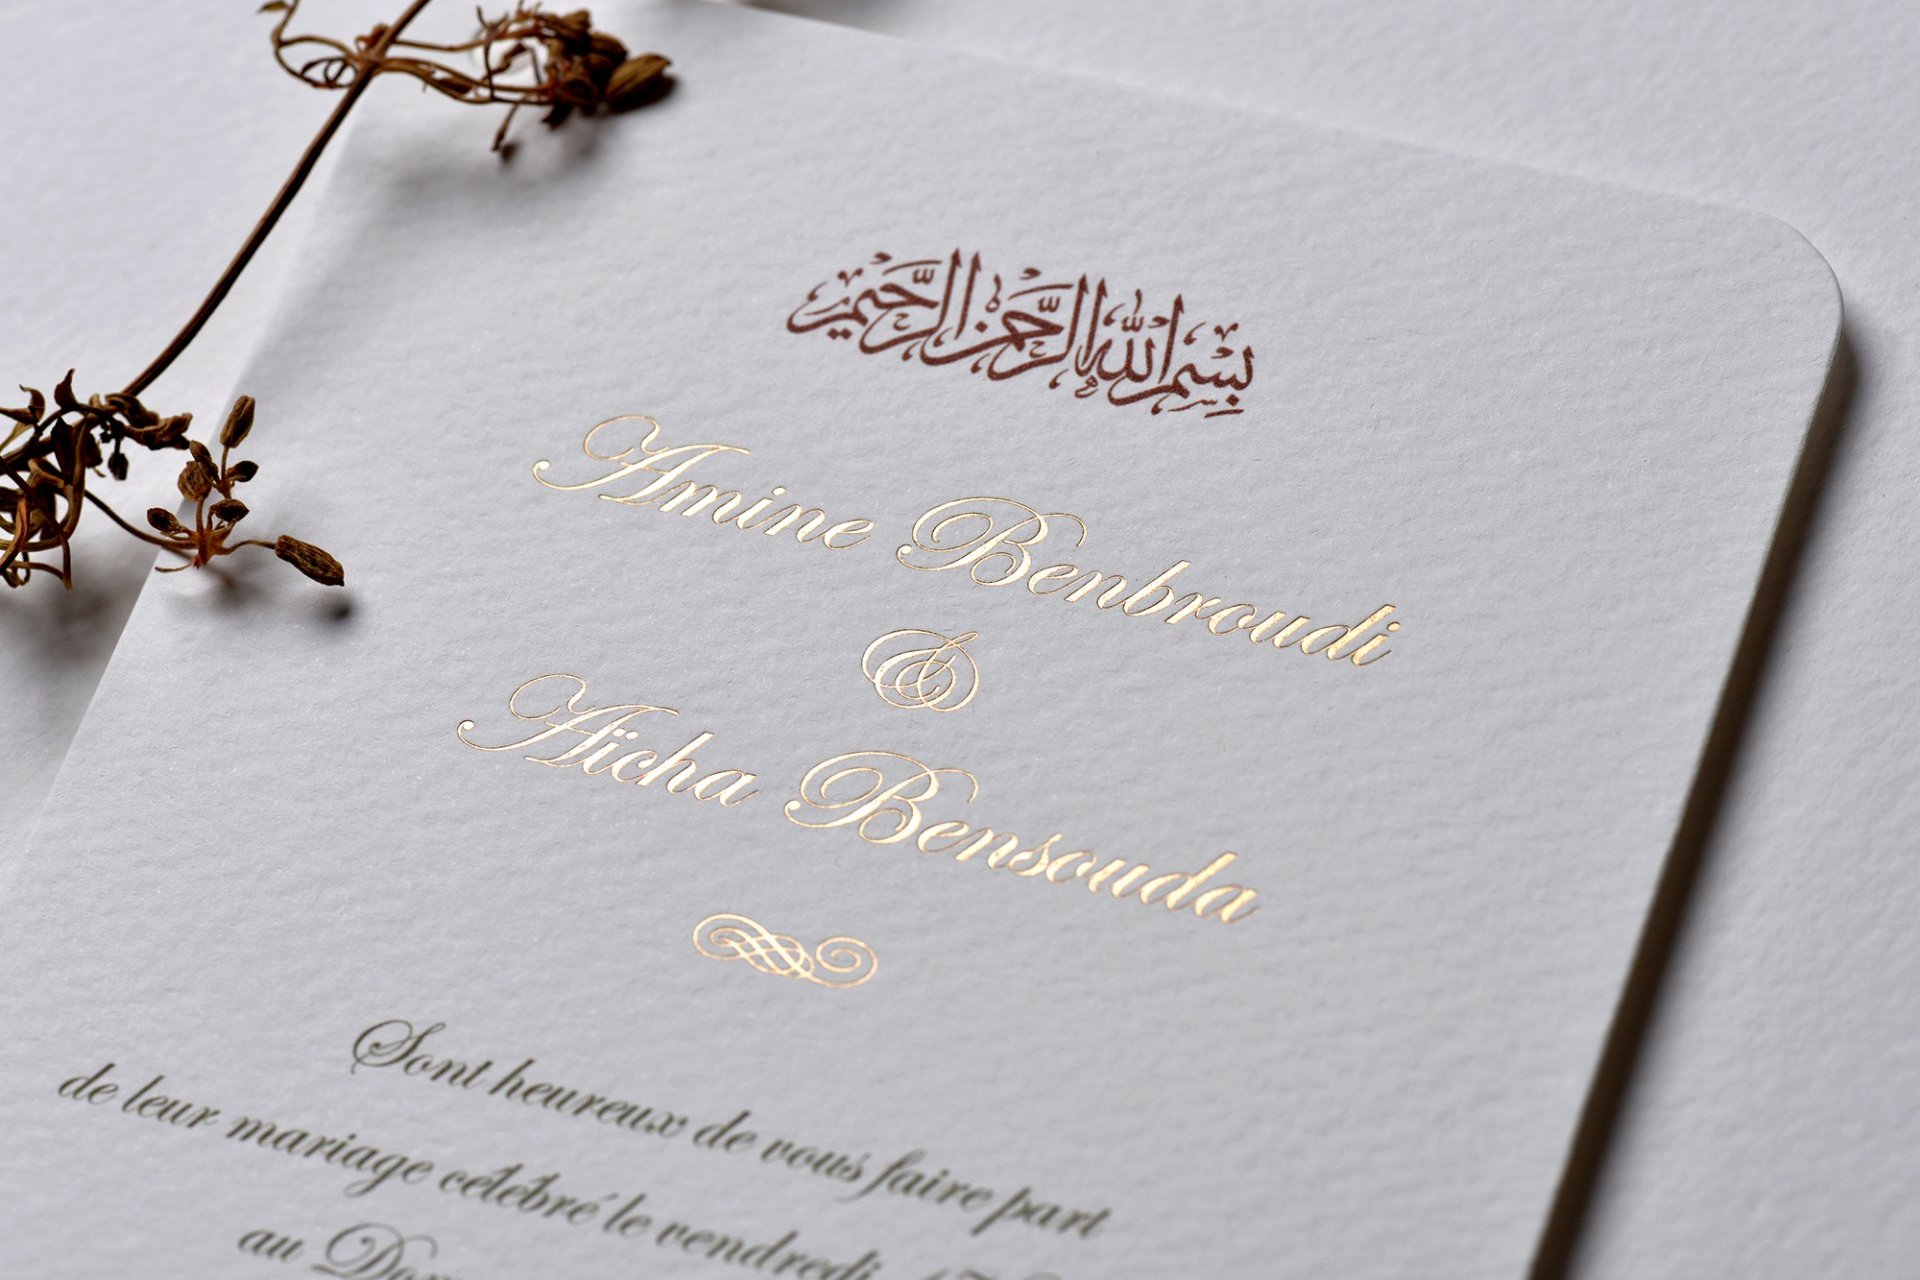 بِسْمِ اللهِ الرَّحْمٰنِ الرَّحِيْمِ
Amine Benbroudi
&
Aïcha Bensouda
Sont heureux de vous faire part
de leur mariage célébré le vendredi
au